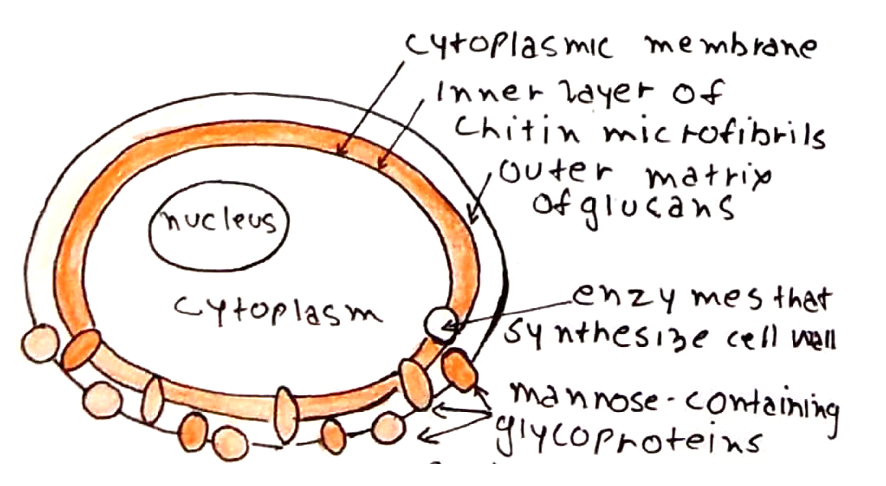 cytoplasmic membrane
inner layer of
chitin microfibrils
outer matrix
of glucans
nucleus
cytoplasm
enzymes that
synthesize cell wall
mannose-containing
glycoproteins